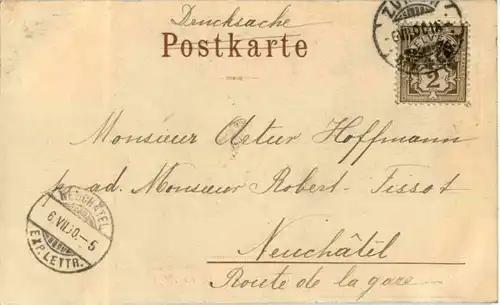 Drucksache
Postkarte
ZÜRICH
2
Monsieur Artur Hoffmann
p. ad. Monsieur Robert-Tissot
Neuchâtel
Route de la gare
NEUCHÂTEL
6.VII.00.-5
EXP.LETTR.